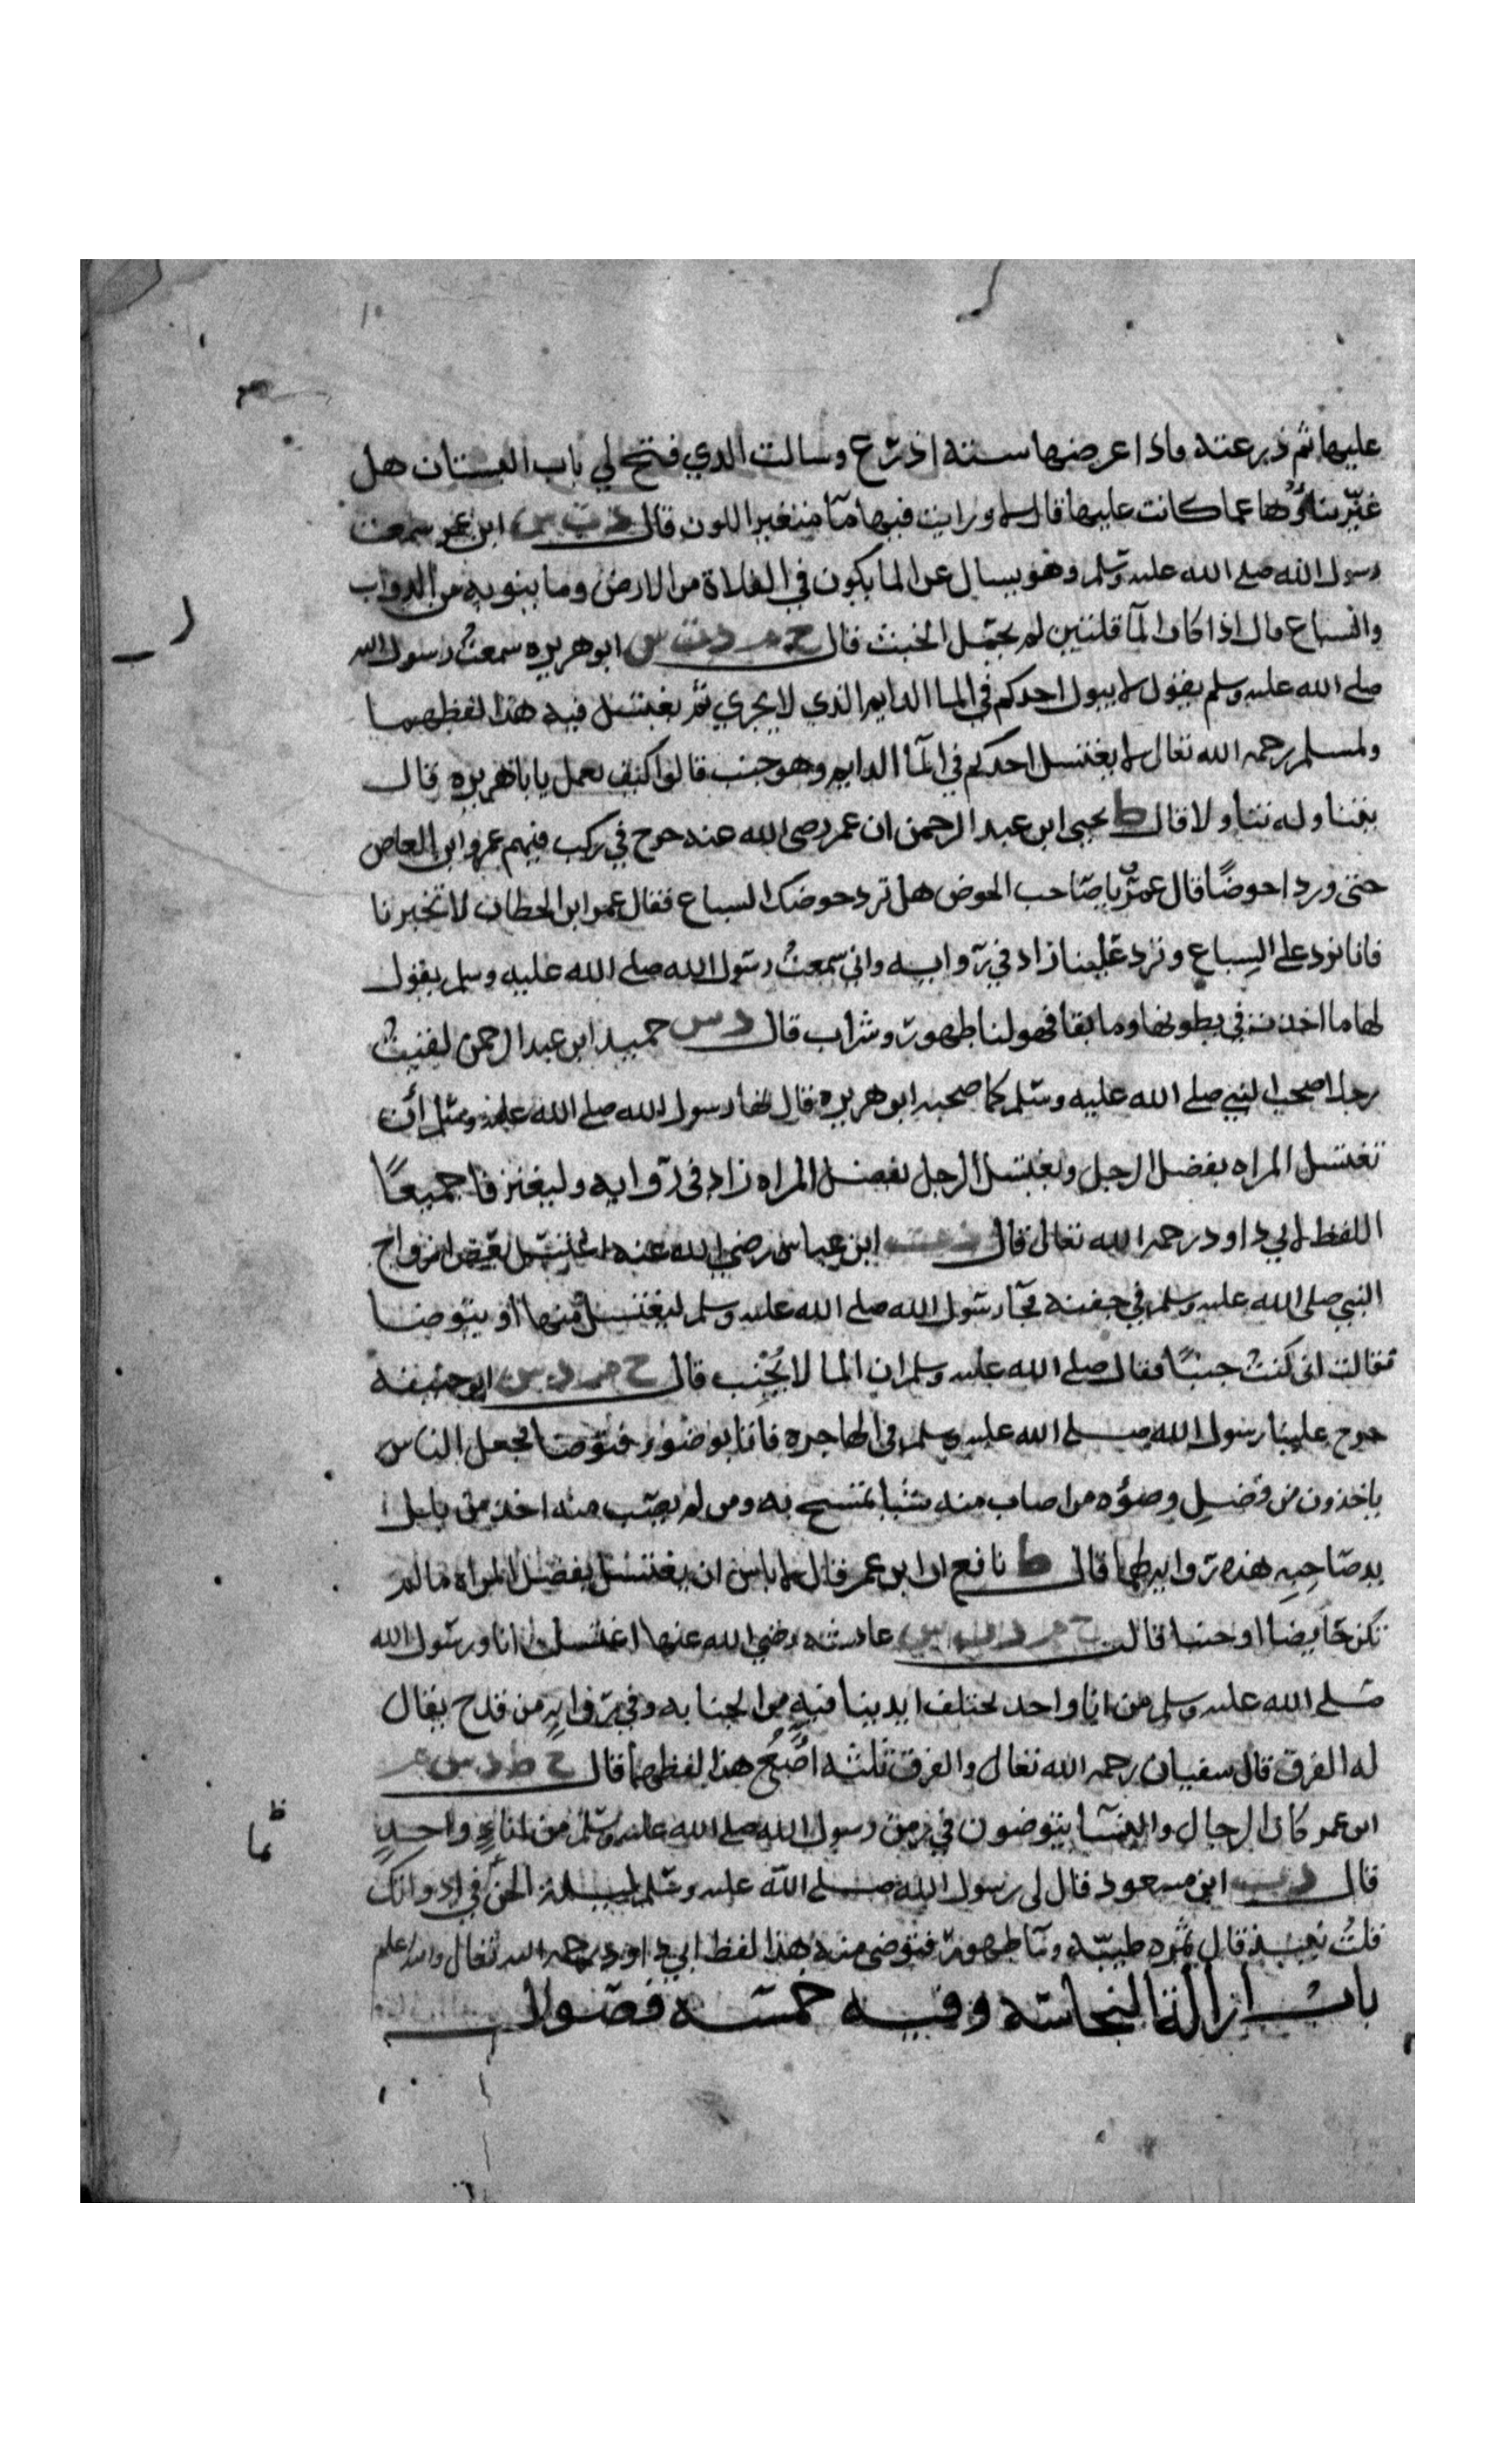 عليها ثم ذرعته فاذا عرضها ستة اذرع وسالت الذي فتح لي باب البستان هل
غير بناوها عما كانت عليها قال لا ورايت فيها مآ متغير اللون قال د ت س ابن عمر سمعت
رسول الله صلى الله عليه وسلم وهو يسال عن الما يكون في الفلاة من الارض وما ينوبه من الدواب
والسباع قال اذا كان المآ قلتين لم يحمل الخبث قال خ م د ت س ابو هريره سمعت رسول الله
صلى الله عليه وسلم يقول لا يبول احدكم في الما الدايم الذي لا يجري ثم يغتسل فيه هذا لفظهما
ولمسلم رحمه الله تعالى لا يغتسل احدكم في المآ الدايم وهو جنب قالوا كيف نعمل يابا هريره قال
يتناوله تناولا قال ط يحيى ابن عبد الرحمن ان عمر رضى الله عنه خرج في ركب فيهم عمرو ابن العاص
حتى وردا حوضًا قال عمرو يا صاحب الحوض هل ترد حوضك السباع فقال عمر ابن الخطاب لا تخبرنا
فانا نرد على السباع وترد علينا زاد في روايه واني سمعت رسول الله صلى الله عليه وسلم يقول
لها ما اخذت في بطونها وما بقا فهو لنا طهور وشراب قال د س حميد ابن عبد الرحمن لقيت
رجلا صحب النبي صلى الله عليه وسلم كما صحبه ابو هريره قال نها رسول الله صلى الله عليه وسلم ان
تغتسل المراه بفضل الرجل ويغتسل الرجل بفضل المراه زاد في روايه وليغترفا جميعًا
اللفظ لابي داود رحمه الله تعالى قال ابن عباس رضي الله عنه اغتسل بعض ازواج
النبي صلى الله عليه وسلم في جفنة فجآ رسول الله صلى الله عليه وسلم ليغتسل منها او يتوضا
فقالت اني كنت جنبًا فقال صلى الله عليه وسلم ان الما لا يُجْنِب قال خ م د س ابو جحيفة
خرج علينا رسول الله صلى الله عليه وسلم في الهاجره فاتا بوضوء فتوضا فجعل الناس
ياخذون من فضل وضوه من اصاب منه شيا تمسح به ومن لم يصب منه اخذ من بلل
يد صاحبه هذه روايتهما قال ط نافع ان ابن عمر قال لا باس ان يغتسل بفضل المراه ما لم
تكن حايضا او جنبا قالت خ م د ت س عايشه رضي الله عنها اغتسلت انا ورسول الله
صلى الله عليه وسلم من انا واحد تختلف ايدينا فيه من الجنابه وفي روايه من قدح يقال
له الفرق قال سفيان رحمه الله تعالى والفرق ثلثه اصُع هذا لفظهما قال خ ط د س
ابن عمر كان الرجال والنسآ يتوضون في زمن رسول الله صلى الله عليه وسلم من اناءٍ واحدٍ
قال د ت ابن مسعود قال لي رسول الله صلى الله عليه وسلم ليلة الجن في اداوتك
قلت نبيذ قال تمره طيبه ومآ طهور فتوضى منه هذا لفظ ابي داود رحمه الله تعالى والله اعلم
باب ازالة النجاسه وفيه خمسه فصول